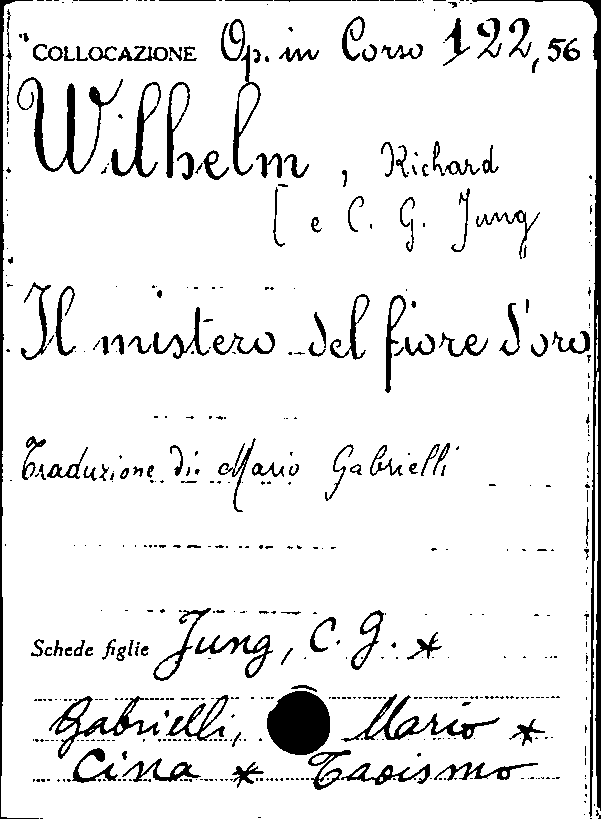 COLLOCAZIONE Op. in Corso 122, 56
Wilhelm, Richard
[ e C. G. Jung
Il mistero del fiore d'oro
Traduzione di: Mario Gabrielli
Schede figlie Jung, C. G. *
Gabrielli, Mario *
Cina * Taoismo